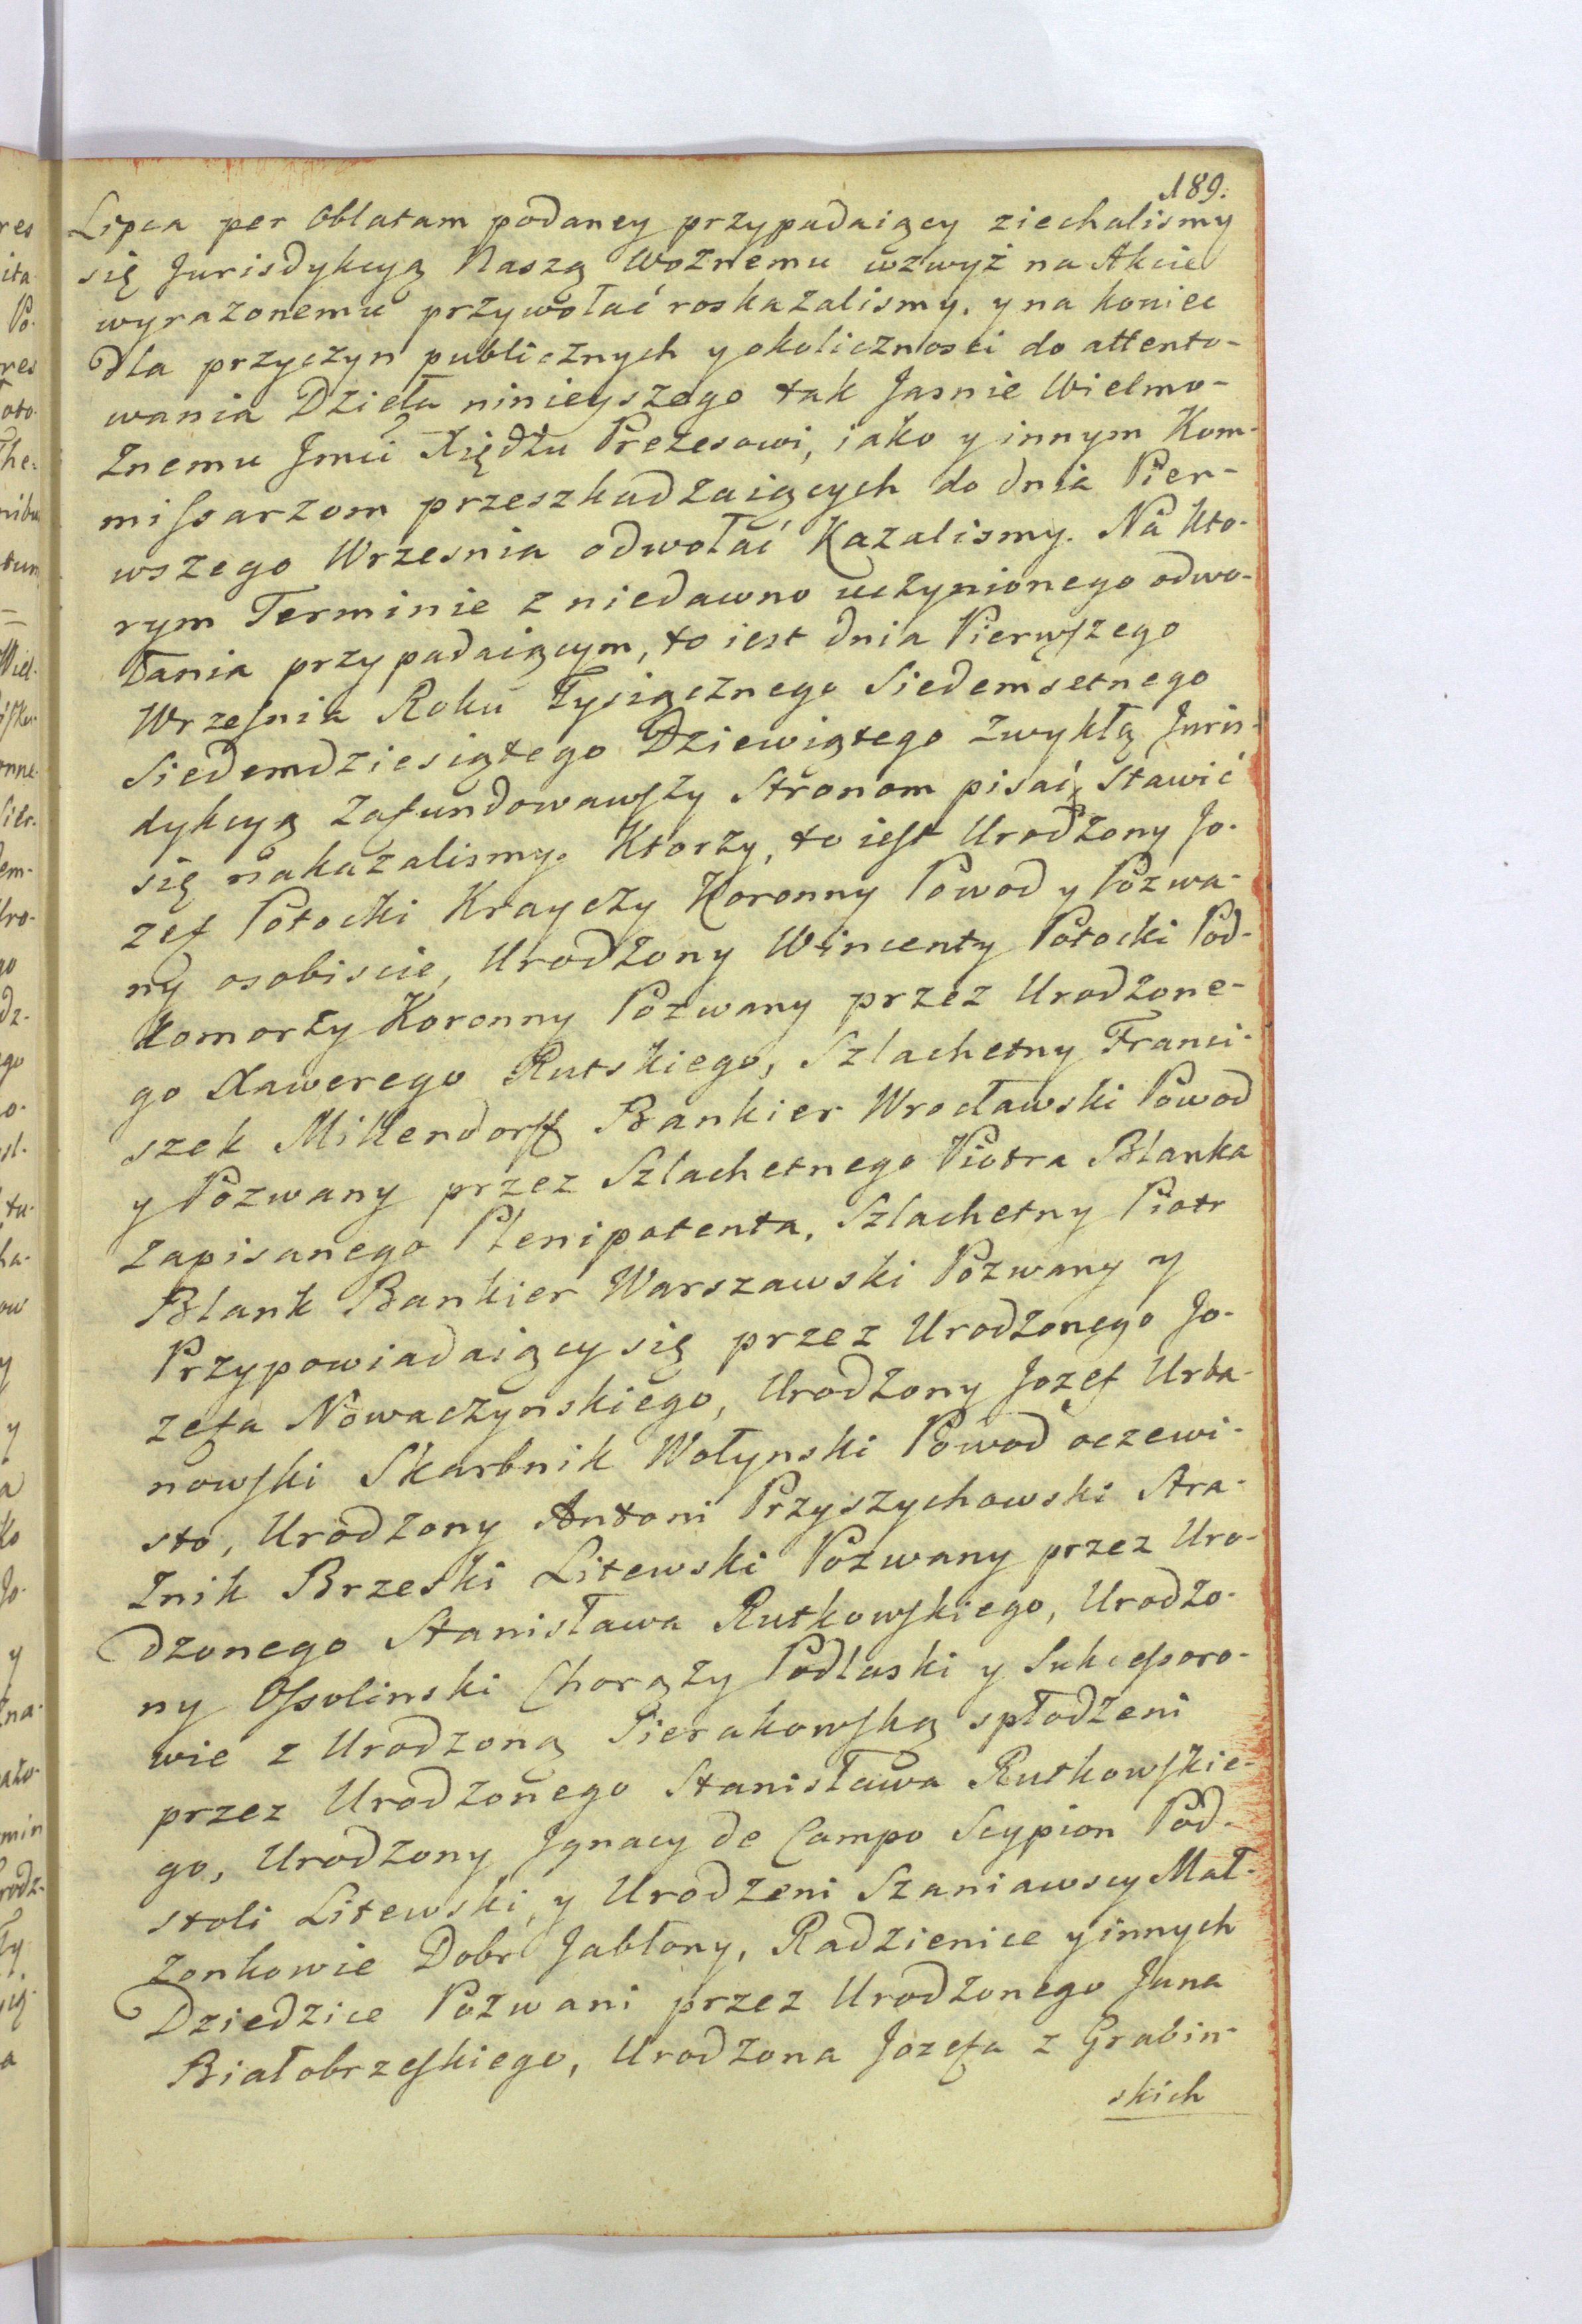 189.
Lipca per Oblatam podaney przypadaiący ziechalismy
się Jurisdykcyą Naszą Woznemu wzwyż na Akcie
wyrazonemu przywołać roskazalismy, y na koniec
dla przyczyn publicznych y okolicznosci do attento-
wania Dzieła ninieyszego tak Jasnie Wielmo-
znemu Jmci Xiędzu Prezesowi, iako y innym Kom-
missarzom przeszkadzaiących do dnia Pier-
wszego Wrzesnia odwołać Kazalismy. Na Kto-
rym Terminie z niedawno uczynionego odwo-
łania przypadaiącym, to iest dnia Pierwszego
Wrzesnia Roku Tysiącznego Siedemsetnego
Siedemdziesiątego Dziewiątego zwykłą Juris-
dykcyą zafundowawszy Stronom pisać, stawić
się nakazalismy. Ktorzy, to iest Urodzony Jo-
zef Potocki Krayczy Koronny Powod y Pozwa-
ny osobiscie, Urodzony Wincenty Potocki Pod-
komorzy Koronny Pozwany przez Urodzone-
go Xawerego Rutskiego, Szlachetny Franci-
szek Millendorff Bankier Wrocławski Powod
y Pozwany przez Szlachetnego Piotra Blanka
zapisanego Plenipotenta, Szlachetny Piotr
Blank Bankier Warszawski Pozwany y
Przypowiadaiący się przez Urodzonego Jo-
zefa Nowaczynskiego, Urodzony Jozef Urba-
nowski Skarbnik Wołynski Powod oczewi-
sto, Urodzony Antoni Przyszychowski Stra-
znik Brzeski Litewski Pozwany przez Uro-
dzonego Stanisława Rutkowskiego, Urodzo-
ny Ossolinski Chorąży Podlaski y Sukcessoro-
wie z Urodzoną Sierakowską spłodzeni
przez Urodzonego Stanisława Rutkowskie-
go, Urodzony Jgnacy de Campo Scypion Pod-
stoli Litewski, y Urodzeni Szaniawscy Mał-
zonkowie Dobr Jabłony, Radzienice y innych
Dziedzice Pozwani przez Urodzonego Jana
Białobrzeskiego, Urodzona Jozefa z Grabin-
skich